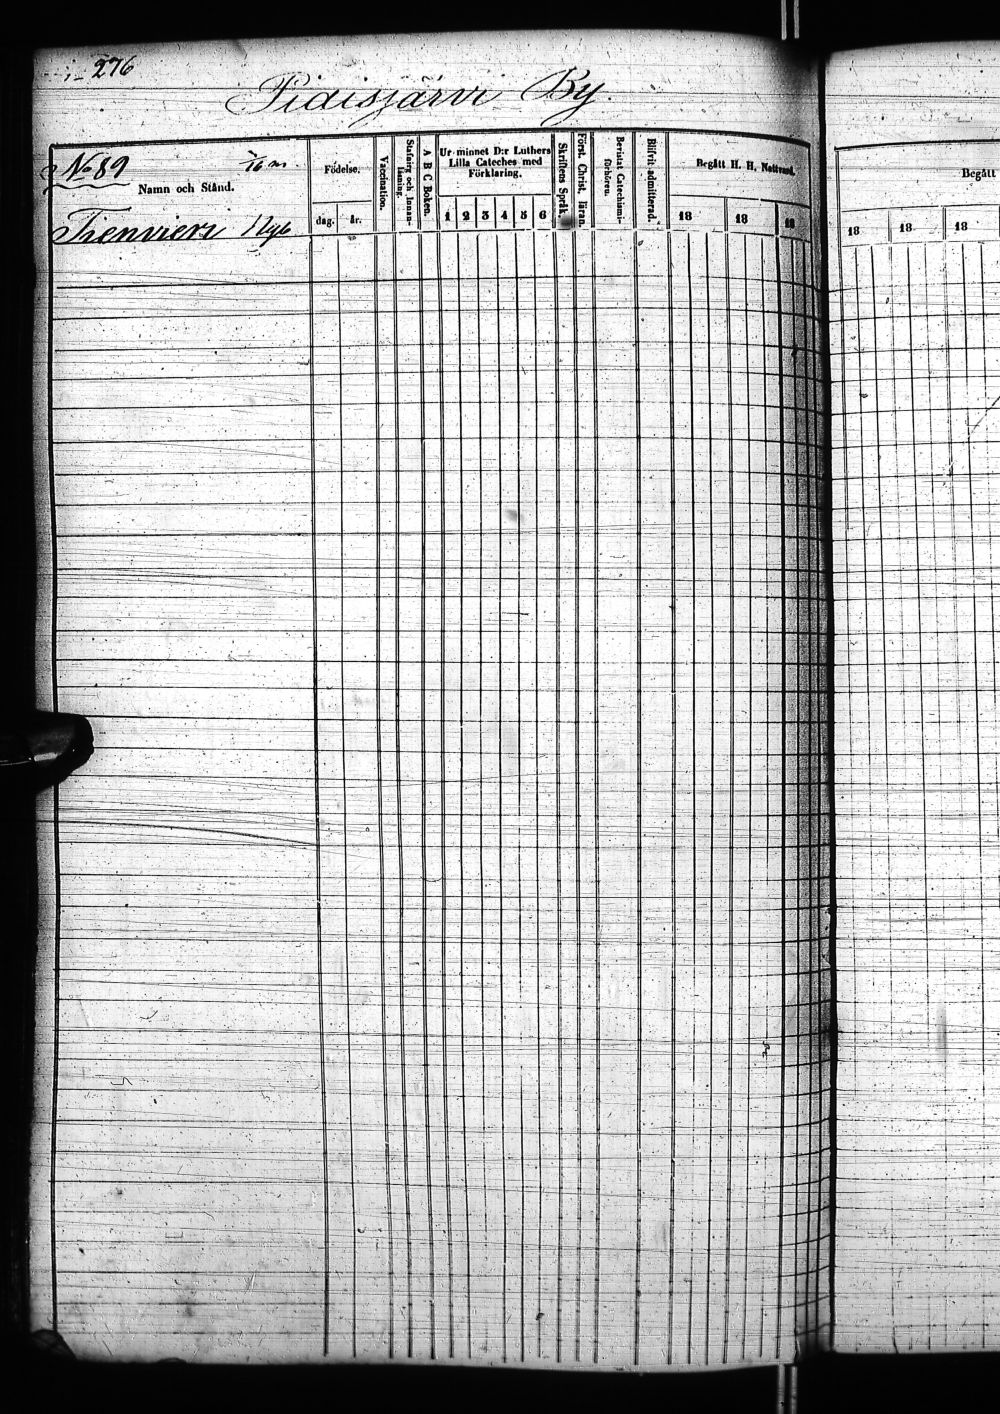 276
Pidisjärvi By.
No 89 1/16 m
Namn och Stånd.
Födelse.
dag. år.
Vaccination.
Stafning och Innanläsning.
A B C Boken.
Ur minnet D:r Luthers
Lilla Cateches med
Förklaring.
1 2 3 4 5 6
Skriftens Språk.
Förest. Christ. läran.
Bevistat Catechismi-
förhören.
Blifvit admitterad.
Begått H. H. Nattvard.
18 18 18
Begått
18 18 18
Tienvieri Nyb